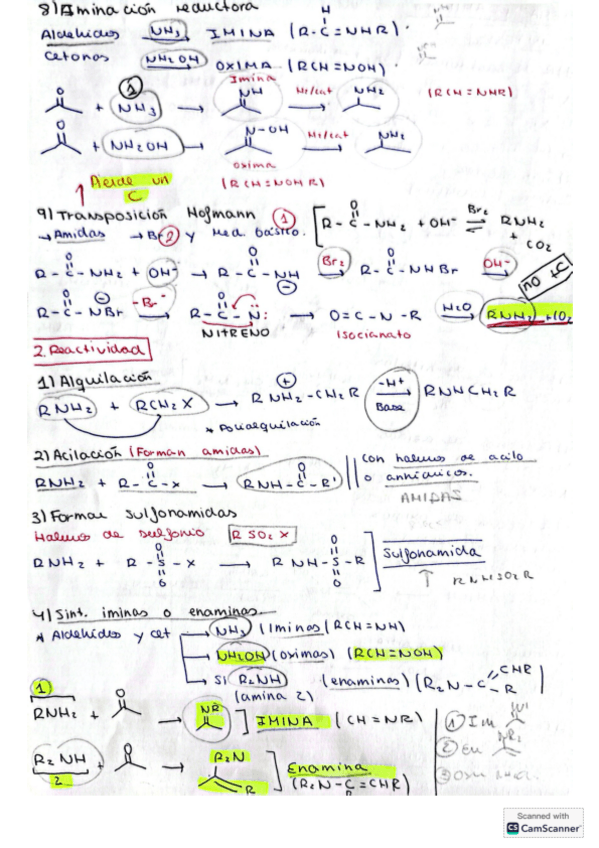 8) Aminación reductora
Aldehidos NH₃ → IMINA (R-C=NHR).
H
Cetonas NH₂OH → OXIMA (RCH=NOH).
Imina
O + NH₃ → NH H₂/cat → NH₂ (RCH=NHR)
O + NH₂OH → N-OH H₂/cat → NH₂
oxima
Pierde un C
(RCH=NOHR)
9) Transposición Hofmann ① [R-C-NH₂ + OH⁻ ⇌ RNH₂ + CO₂
O Br₂
→ Amidas → Br₂ y Med. básico.
R-C-NH₂ + OH⁻ → R-C-NH Br₂ → R-C-NHBr OH⁻ →
O O ⊖ O
no +C
R-C-NBr -Br⁻ → R-C-N: → O=C-N-R H₂O → RNH₂ + CO₂
O ⊖ O
NITRENO Isocianato
2. Reactividad
1) Alquilación
RNH₂ + RCH₂X → RNH₂-CH₂R -H⁺ Base → RNHCH₂R
⊕
* Polialquilación
2) Acilación (Forman amidas)
RNH₂ + R-C-X → RNH-C-R' || con haluros de acilo
O O
o anhidricos.
AMIDAS
3) Formar sulfonamidas
Haluros de sulfonio RSO₂X
RNH₂ + R-S-X → RNH-S-R] Sulfonamida
O O O O
↑ RNHSO₂R
4) Sint. iminas o enaminas.
* Aldehidos y cet → NH₃ (Iminas (RCH=NH)
→ NH₂OH (oximas) (RCH=NOH)
→ Si R₂NH (enaminas) (R₂N-C-R)
CHR
(amina 2)
1
RNH₂ + O → NR ] IMINA (CH=NR)
① Im
② En NR₂
R₂NH + O → R₂N R ] Enamina
2
(R₂N-C=CHR)
R
③
Scanned with
CS CamScanner